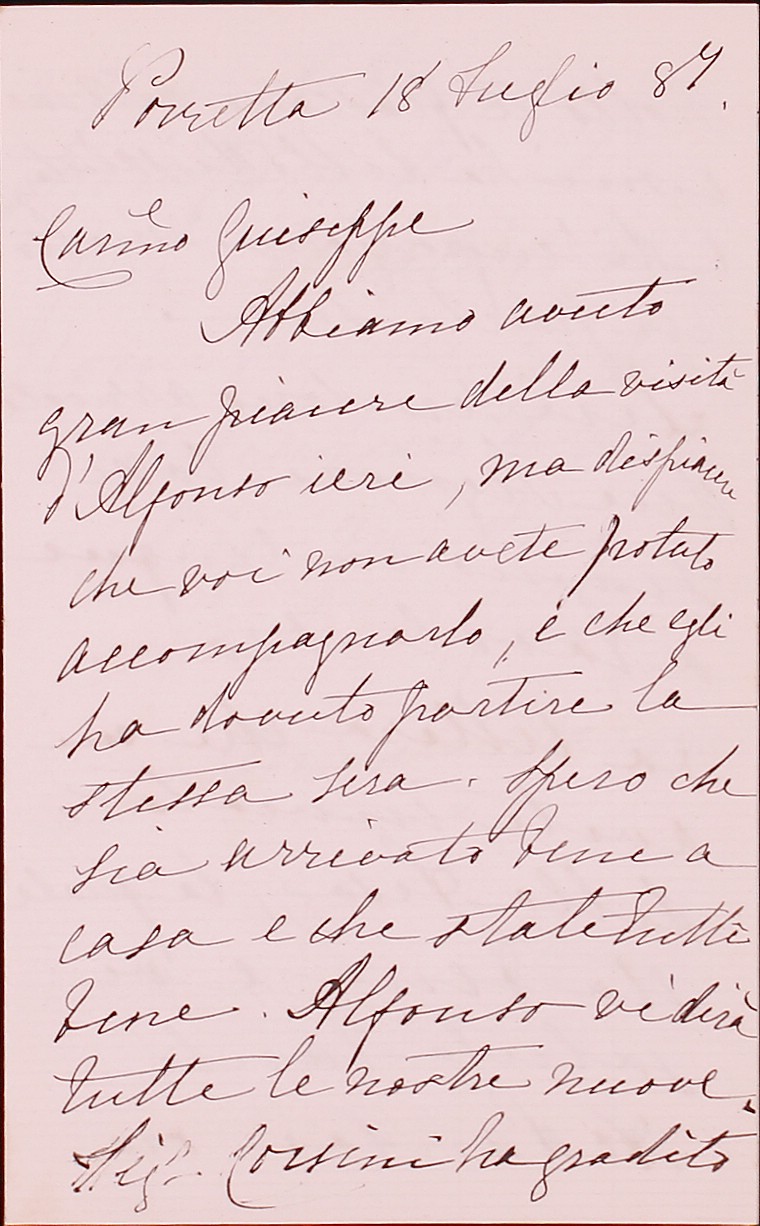 Porretta 18 Luglio 87.
Carmo Giuseppe
Abbiamo avuto
gran piacere della visità
d'Alfonso ieri, ma dispiacere
che voi non avete potuto
accompagnarlo, e che egli
ha dovuto partire la
stessa sera. Spero che
sia arrivato bene a
casa e che state tutti
bene. Alfonso vi dirà
tutte le nostre nuove.
Sigr Corsini ha gradito